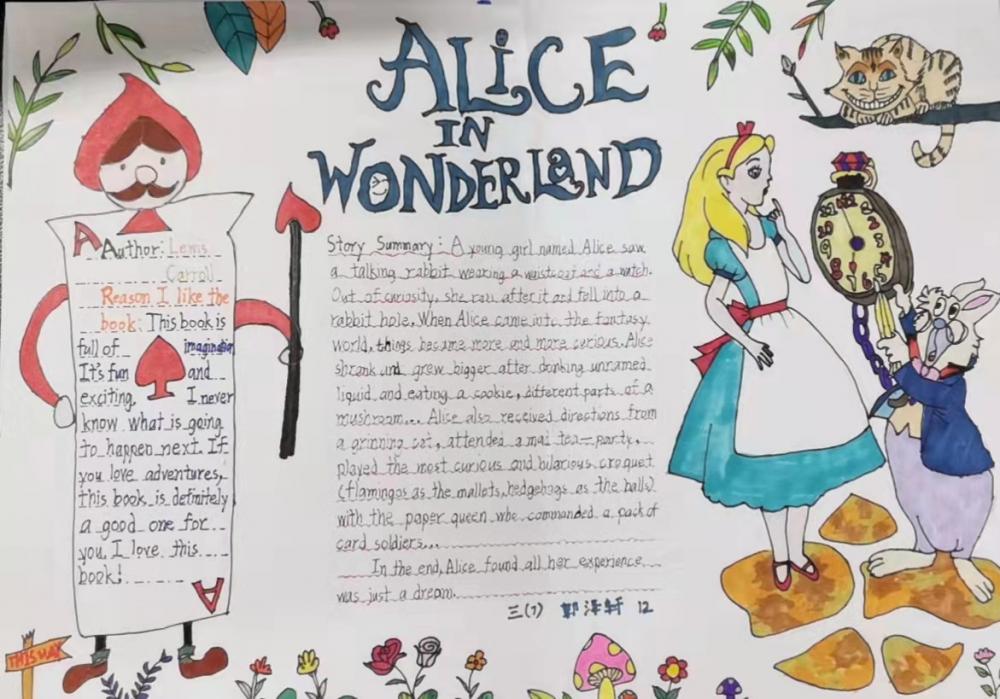 ALiCE
IN
WONDERLAND
A
Author: Lewis
Carroll
Reason I like the
book: This book is
full of imagination
It's fun and
exciting. I never
know what is going
to happen next. If
you love adventures,
this book is definitely
a good one for
you. I love this
book!
A
Story Summary: A young girl named Alice saw
a talking rabbit wearing a waistcoat and a watch.
Out of curiosity, she ran after it and fell into a
rabbit hole. When Alice came into the fantasy
world, things became more and more curious. Alice
shrank and grew bigger after drinking unnamed
liquid and eating a cookie, different parts of a
mushroom... Alice also received directions from
a grinning cat, attended a mad tea-party,
played the most curious and hilarious croquet
(flamingos as the mallets, hedgehogs as the balls)
with the paper queen who commanded a pack of
card soldiers...
In the end, Alice found all her experience
was just a dream.
三(7) 郭泽轩 12
THIS WAY